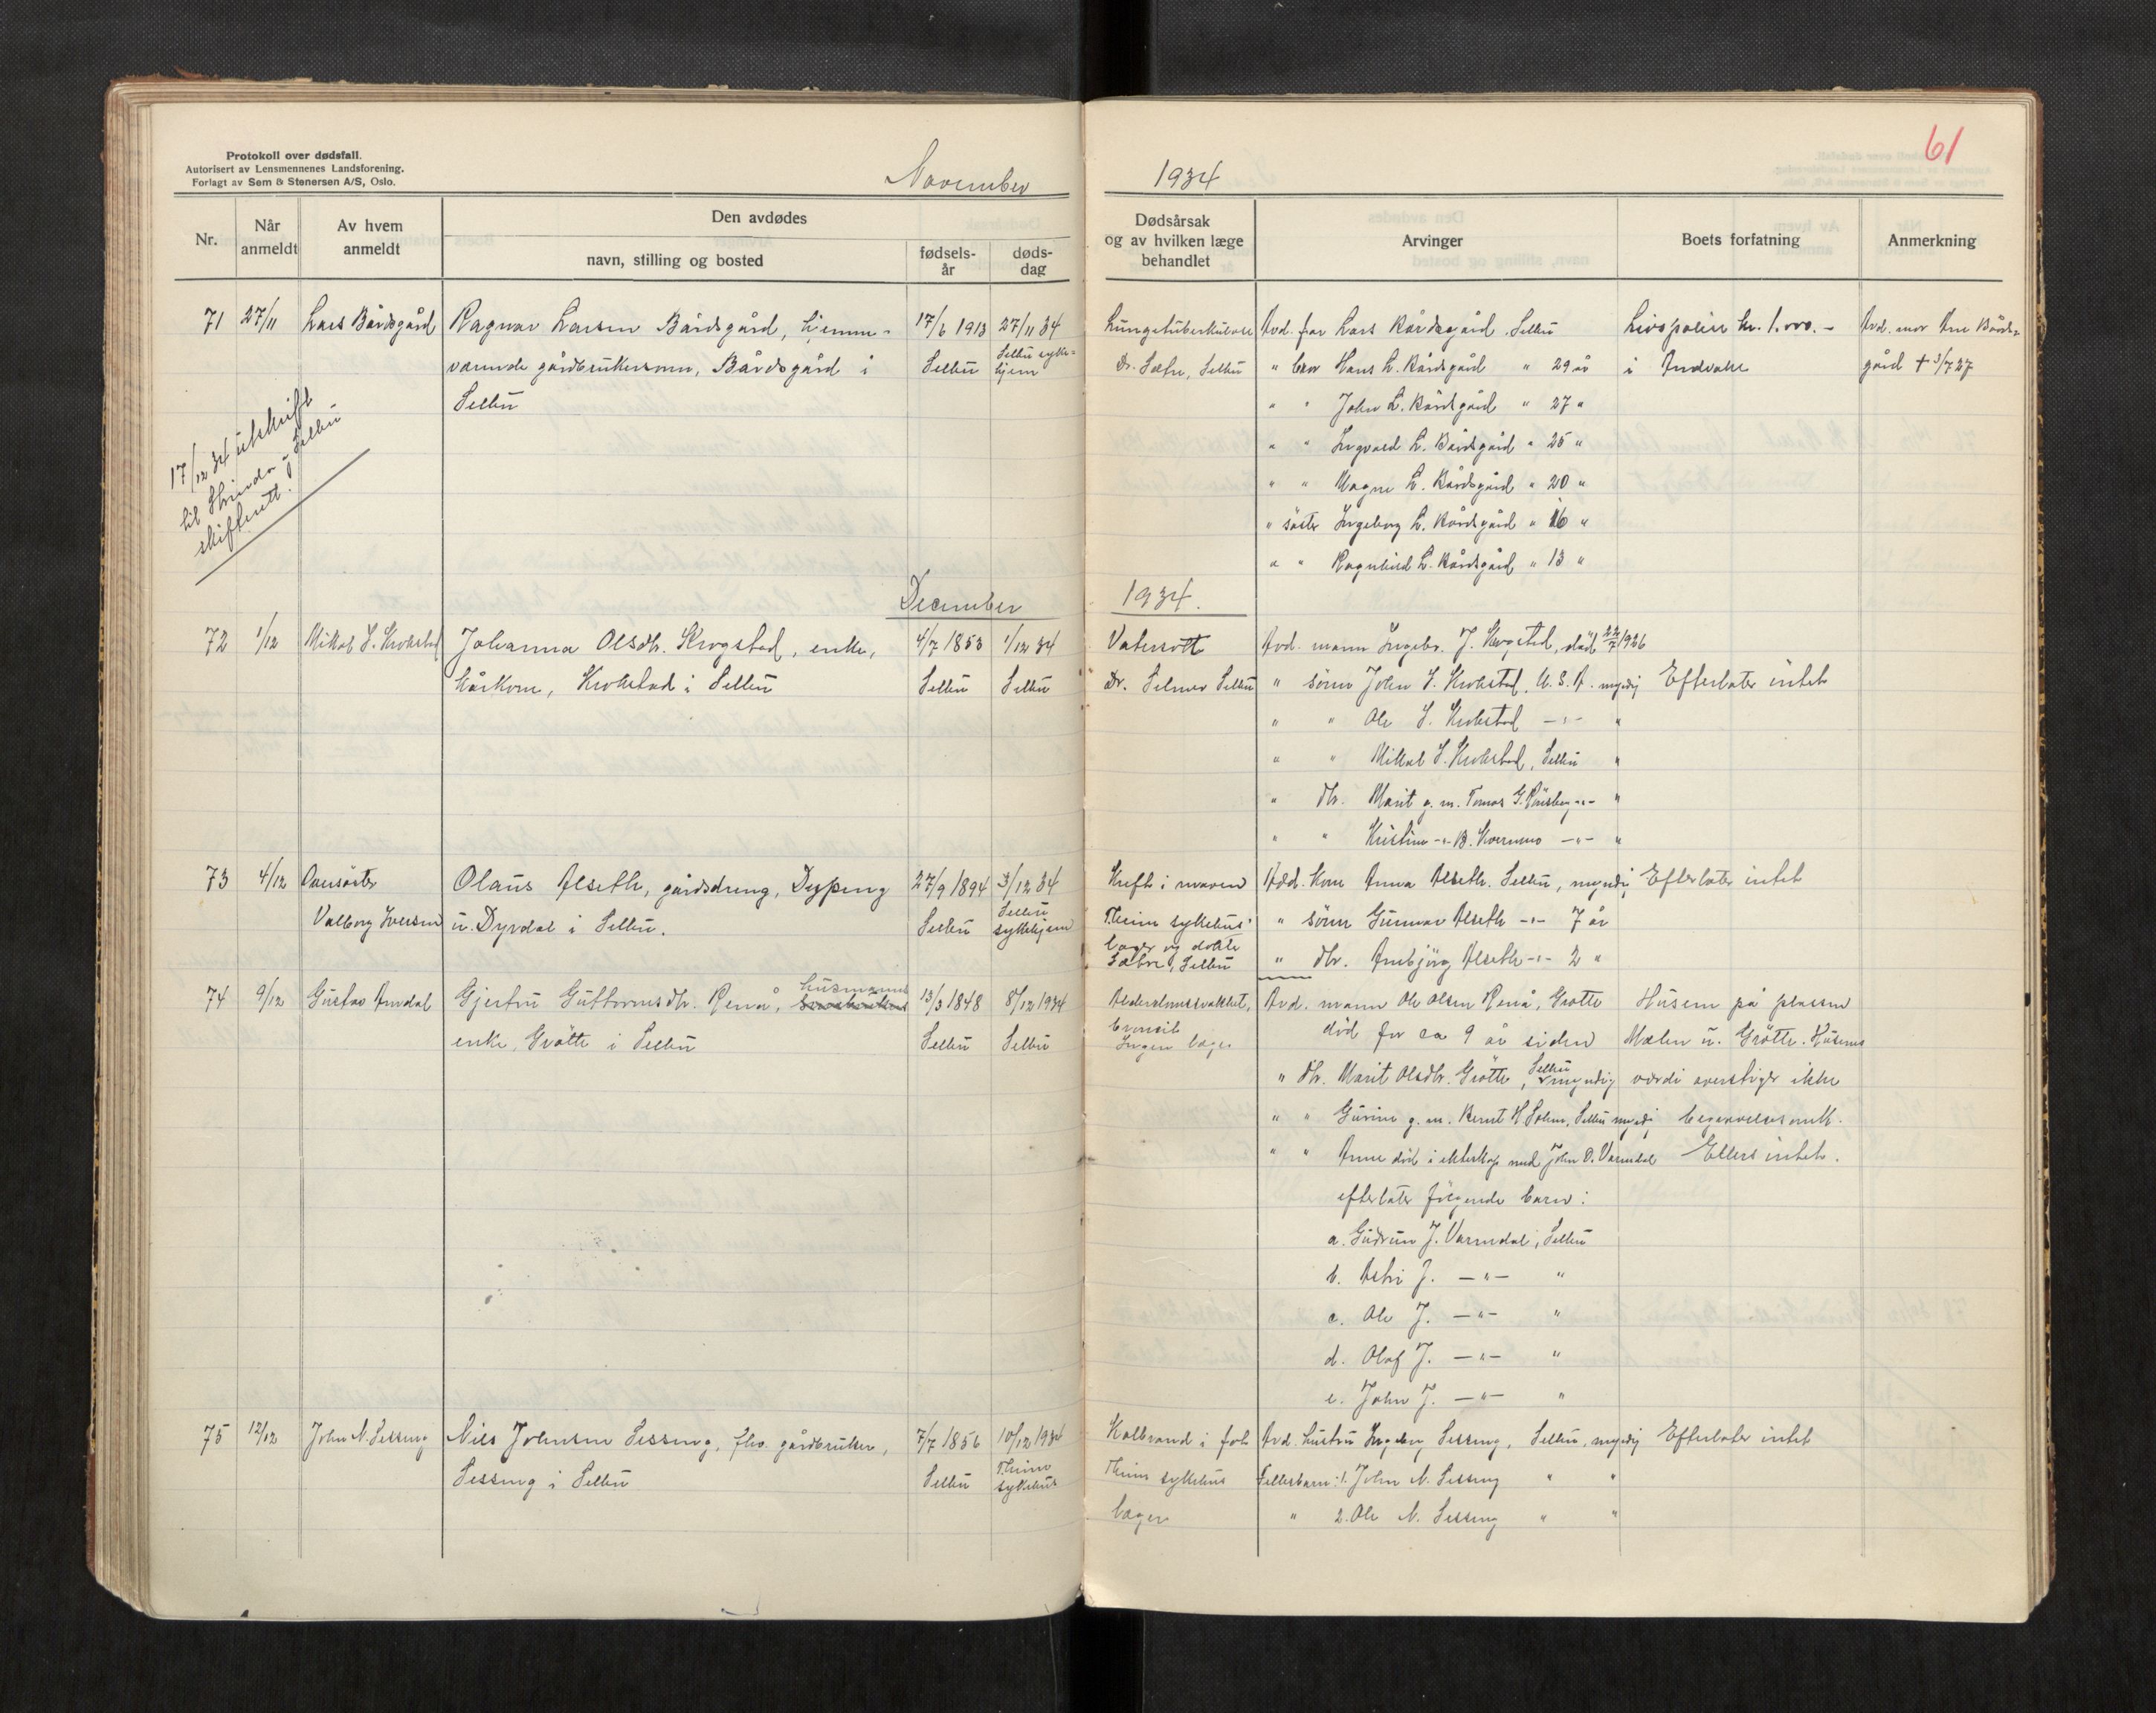 Protokoll over dødsfall.
Autorisert av Lensmennenes Landsforening.
Forlagt av Sem & Stenersen A/S, Oslo.
November
1934
61
Nr.
Når anmeldt
Av hvem anmeldt
Den avdødes
navn, stilling og bosted
fødsels-år
døds-dag
Dødsårsak og av hvilken læge behandlet
Arvinger
Boets forfatning
Anmerkning
71 27/11 Lars Bårdsgård Ragnar Larsen Bårdsgård, hjemme- 17/6 1913 27/11 34 Lungetuberkulose Avd. far Lars Bårdsgård, Selbu Livspolise kr. 1.000.- Avd. mor Ane Bårds-
værende gårdbrukersønn, Bårdsgård i Selbu Selbu syke-hjem Dr. Sæbre, Selbu " bror Hans L. Bårdsgård " 29 år i Andvake gård + 3/7 27
Selbu " " John L. Bårdsgård " 27 "
17/12 34 utskrift
til Strinda og Selbu
skifterett.
" " Ingvald L. Bårdsgård " 25 "
" " Magne L. Bårdsgård " 20 "
" søster Ingeborg L. Bårdsgård " 16 "
" " Ragnhild L. Bårdsgård " 13 "
December 1934.
72 1/12 Mikal I. Krokstad Johanna Olsdtr. Krogstad, enke, 4/7 1853 1/12 34 Vatersott Avd. mann Ingebr. J. Krogstad, død 22/7 1926
kårkone, Krokstad i Selbu Selbu Selbu Dr. Selmer Selbu " sønn John I. Krokstad, U.S.A. myndig Efterlater intet
" " Ole I. Krokstad -"- "
" " Mikal I. Krokstad, Selbu "
" dtr. Marit g.m. Tomas G. -"- "
" " Kristine -"- B. Kvernmo -"- "
73 4/12 Avd. søster Olaus Alseth, gårdsdreng, Dyping 27/9 1894 3/12 34 Kreft i maven Avd. kone Anna Alseth, Selbu, myndig Efterlater intet
Valborg Iversen u. Dyrdal i Selbu. Selbu Selbu sykehjem T.heim sykehus' " sønn Gunnar Alseth -"- 7 år
læger og dokte Sæbre, Selbu " dtr. Annbjørg Alseth -"- 2 "
74 9/12 Gustav Amdal Gjertru Guttormsdtr. Renå, husmanns 13/3 1848 8/12 1934 Alderdomssvakhet, Avd. mann Ole Olsen Renå, Grøtte Husene på plassen
enke, Grøtte i Selbu Selbu Selbu bronsit død for ca 9 år siden Mælen u. Grøtte. Husenes
Ingen læge
" dtr. Marit Olsdtr. Grøtte, Selbu myndig verdi overstiger ikke
" " Gurine g.m. Bernt H. Solem, Selbu myndig begravelsesomk.
" " Anne død i ekteskap med John O. Varmdal Ellers intet.
efterlater følgende barn:
a. Gudrun J. Varmdal, Selbu
b. Astri J. -"- "
c. Ole J. -"- "
d. Olaf J. -"- "
e. John J. -"- "
75 12/12 John N. Sesseng Nils Johnsen Sesseng, fhv. gårdbruker, 7/7 1856 10/12 1934 Kolbrand i fot Avd. hustru Ingeborg Sesseng, Selbu, myndig Efterlater intet
Sesseng i Selbu Selbu T.heim sykehus T.heim sykehus Fellesbarn: 1. John N. Sesseng " "
læger " 2. Ole N. Sesseng " "